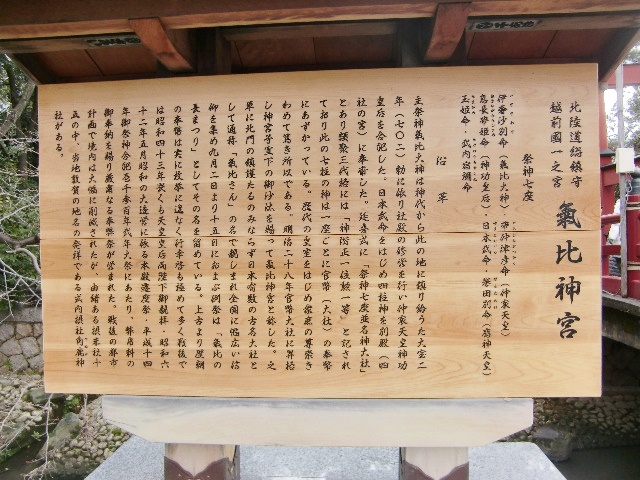 北陸道総鎮守
越前國一之宮
氣比神宮
祭神七座
伊奢沙別命（氣比大神）・帯仲津彦命（仲哀天皇）
息長帯姫命（神功皇后）・日本武命・誉田別命（應神天皇）
玉姫命・武内宿禰命
沿革
主祭神氣比大神は神代から此の地に鎮り給うた大宝二
年（七〇二）勅に依り社殿の修営を行い仲哀天皇神功
皇后を合祀した。日本武命をはじめ四柱神を別殿（四
社の宮）に奉斎した。延喜式に「祭神七座並名神大社」
とあり類聚三代格には「神階正一位勲一等」と記され
ており此の七柱の神は一座ごとに官幣（大社）の奉幣
にあずかっている。歴代の皇室をはじめ衆庶の尊崇き
わめて篤き所以である。明治二十八年官幣大社に昇格
し神宮号宣下の御沙汰を賜って氣比神宮と称した。之
単に北門の鎮護たるのみならず日本有数の古名大社と
して通称「氣比さん」の名で親しまれ全國に幅広い信
仰を集め九月二日より十五日におよぶ例祭は「氣比の
長まつり」としてその名を留めている。上古より歴朝
の奉幣は実に枚挙に遑なく行幸啓も極めて多く戦後で
は昭和四十三年畏くも天皇皇后両陛下御親拝・昭和六
十二年五月昭和の大造営に依る本殿遷座祭・平成十四
年御祭神合祀壱千参百年式年大祭にあたり、幣帛料の
御奉納を賜り厳粛なる奉祭が営まれた。戦後の都市
計画で境内は大幅に削減されたが、由緒ある摂末社十
五の中、当地敦賀の地名の発祥である式内摂社角鹿神
社がある。